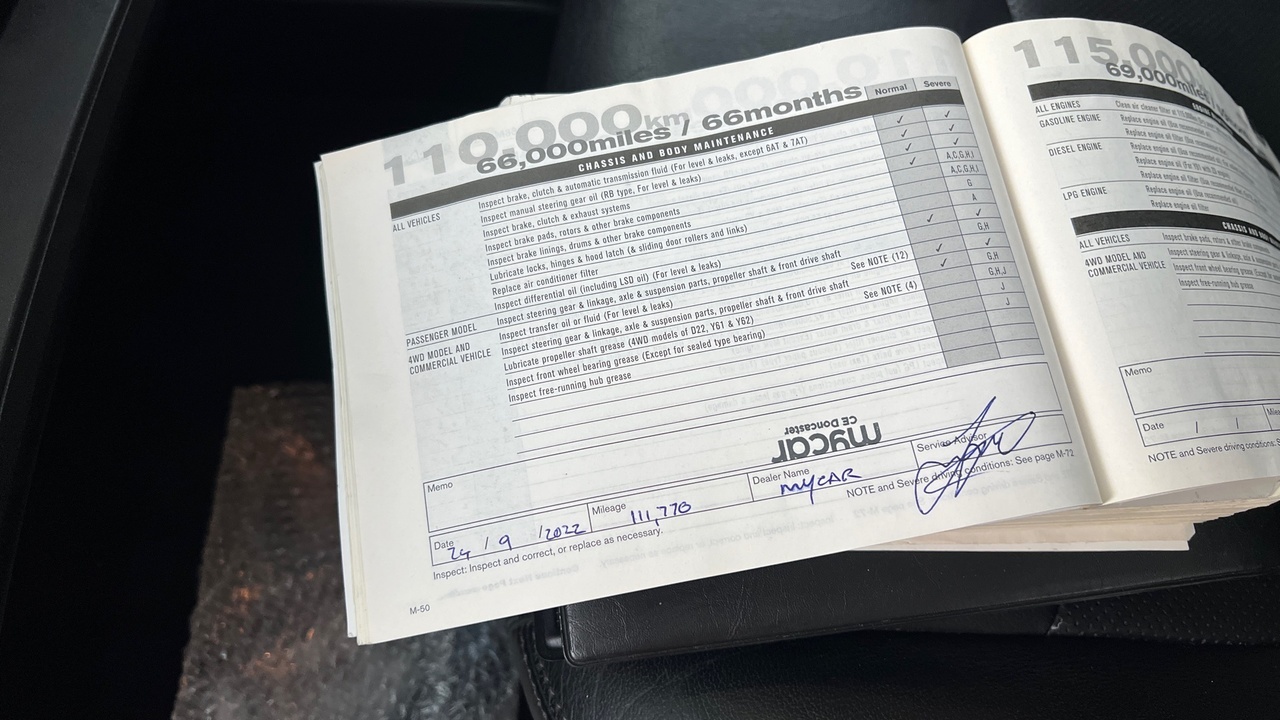 110,000km
66,000miles / 66months
Normal
Severe
CHASSIS AND BODY MAINTENANCE
ALL VEHICLES
Inspect brake, clutch & automatic transmission fluid (For level & leaks, except 6AT & 7AT) ✓ ✓
Inspect manual steering gear oil (RB type, For level & leaks) ✓ ✓
Inspect brake, clutch & exhaust systems ✓ ✓
Inspect brake pads, rotors & other brake components A,C,G,H,I
Inspect brake linings, drums & other brake components A,C,G,H,I
Lubricate locks, hinges & hood latch (& sliding door rollers and links) G
Replace air conditioner filter A
Inspect differential oil (including LSD oil) (For level & leaks) ✓ ✓
PASSENGER MODEL
Inspect steering gear & linkage, axle & suspension parts, propeller shaft & front drive shaft G,H
4WD MODEL AND
COMMERCIAL VEHICLE
Inspect transfer oil or fluid (For level & leaks) See NOTE (12) ✓ ✓
Inspect steering gear & linkage, axle & suspension parts, propeller shaft & front drive shaft ✓ G,H
Lubricate propeller shaft grease (4WD models of D22, Y61 & Y62) See NOTE (4) G,H,J
Inspect front wheel bearing grease (Except for sealed type bearing) J
Inspect free-running hub grease J
mycar
CE Doncaster
Memo
Date
24 / 9 / 2022
Mileage
111,770
Dealer Name
MYCAR
Service Advisor
Inspect: Inspect and correct, or replace as necessary.
NOTE and Severe driving conditions: See page M-72
M-50
115,000
69,000miles
ALL ENGINES
Clean air cleaner filter
GASOLINE ENGINE
Replace engine oil
Replace engine oil
DIESEL ENGINE
Replace engine oil
Replace engine oil
Replace engine oil
LPG ENGINE
Replace engine oil
Replace engine oil filter
CHASSIS AND
ALL VEHICLES
Inspect brake pads, rotors & other brake
4WD MODEL AND
COMMERCIAL VEHICLE
Inspect steering gear & linkage, axle &
Inspect front wheel bearing grease
Inspect free-running hub grease
Memo
Date / /
NOTE and Severe driving conditions: